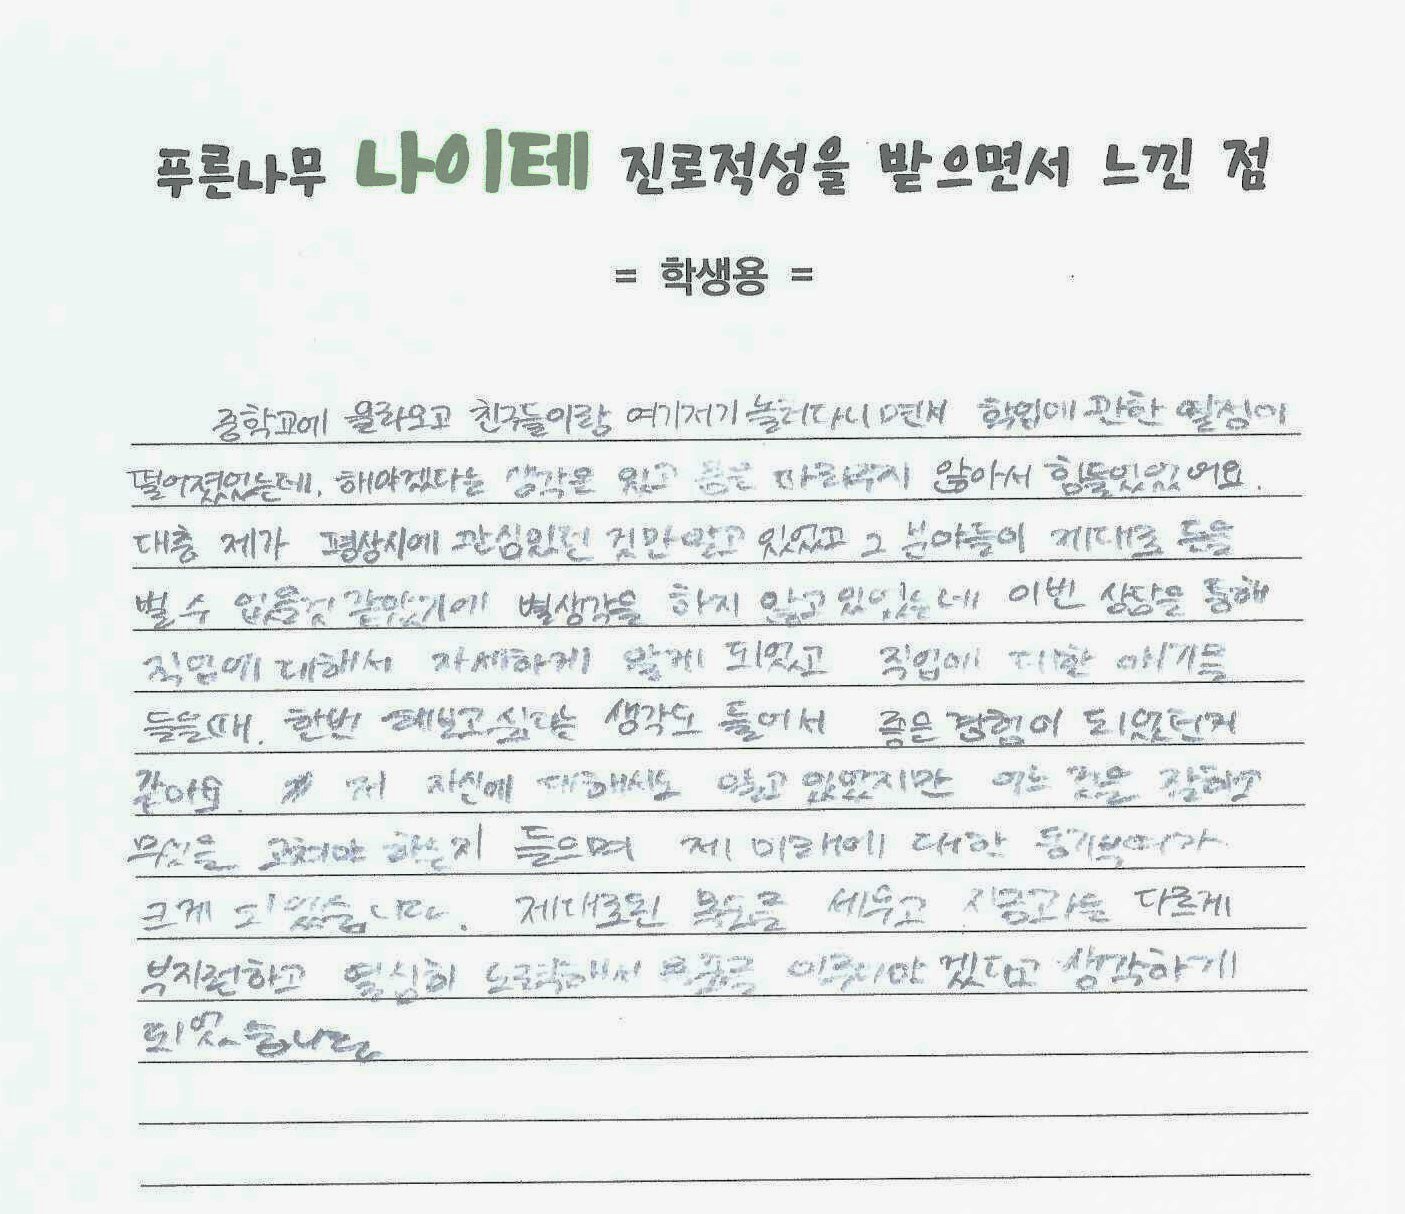 푸른나무 나이테 진로적성을 받으면서 느낀 점
= 학생용 =
중학교에 올라오고 친구들이랑 여기저기 놀러다니면서 학업에 관한 열심이
떨어졌었는데, 해야겠다는 생각은 있고 몸은 따라주지 않아서 힘들었었어요.
대충 제가 평상시에 관심있던 것만 알고 있었고 그 분야들이 제대로 돈을
벌 수 없을것 같았기에 별생각을 하지 않고 있었는데 이번 상담을 통해
직업에 대해서 자세하게 알게 되었고 직업에 대한 얘기를
들을때, 한번 해보고싶다는 생각도 들어서 좋은 경험이 되었던거
같아요. 저 자신에 대해서도 알고 있었지만 어느 것을 잘하고
무엇을 고쳐야 하는지 들으며 제 미래에 대한 동기부여가
크게 되었습니다. 제대로된 목표를 세우고 지금과는 다르게
부지런하고 열심히 노력해서 목표를 이루어야겠다고 생각하게
되었습니다